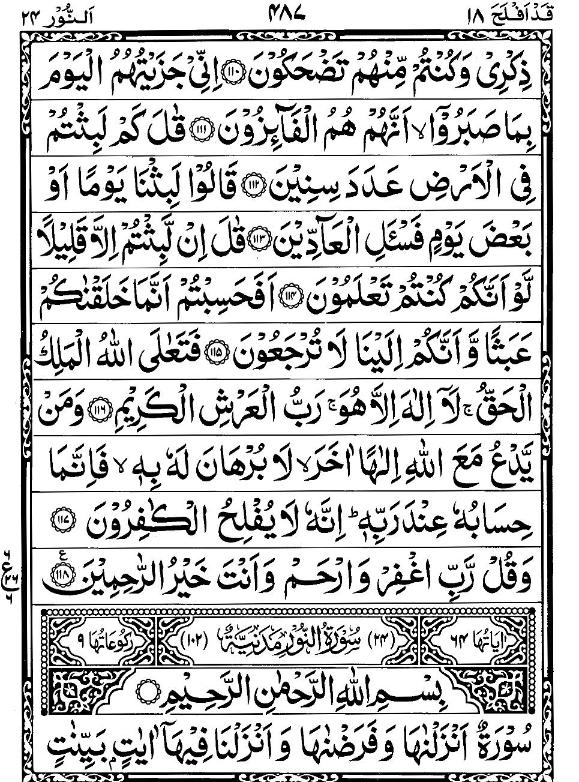 قَدْ اَفْلَحَ ١٨ ۴٨٧ اَلنُّوْر ٢۴
ذِكْرِىْ وَكُنْتُمْ مِّنْهُمْ تَضْحَكُوْنَ ﴿١١٠﴾ اِنِّىْ جَزَيْتُهُمُ الْيَوْمَ
بِمَا صَبَرُوْۤا ۙ اَنَّهُمْ هُمُ الْفَآئِزُوْنَ ﴿١١١﴾ قٰلَ كَمْ لَبِثْتُمْ
فِى الْاَرْضِ عَدَدَ سِنِيْنَ ﴿١١٢﴾ قَالُوْا لَبِثْنَا يَوْمًا اَوْ
بَعْضَ يَوْمٍ فَسْـَٔلِ الْعَآدِّيْنَ ﴿١١٣﴾ قٰلَ اِنْ لَّبِثْتُمْ اِلَّا قَلِيْلًا
لَّوْ اَنَّكُمْ كُنْتُمْ تَعْلَمُوْنَ ﴿١١۴﴾ اَفَحَسِبْتُمْ اَنَّمَا خَلَقْنٰكُمْ
عَبَثًا وَّاَنَّكُمْ اِلَيْنَا لَا تُرْجَعُوْنَ ﴿١١۵﴾ فَتَعٰلَى اللّٰهُ الْمَلِكُ
الْحَقُّ ۚ لَاۤ اِلٰهَ اِلَّا هُوَ ۚ رَبُّ الْعَرْشِ الْكَرِيْمِ ﴿١١٦﴾ وَمَنْ
يَّدْعُ مَعَ اللّٰهِ اِلٰهًا اٰخَرَ ۙ لَا بُرْهَانَ لَهٗ بِهٖ ۙ فَاِنَّمَا
حِسَابُهٗ عِنْدَ رَبِّهٖ ؕ اِنَّهٗ لَا يُفْلِحُ الْكٰفِرُوْنَ ﴿١١٧﴾
وَقُلْ رَّبِّ اغْفِرْ وَارْحَمْ وَاَنْتَ خَيْرُ الرّٰحِمِيْنَ ﴿١١٨﴾ ع
٦ ع ٢٦ ٦
اٰيَاتُهَا ٦۴ (٢۴) سُوْرَةُ النُّوْرِ مَدَنِيَّةٌ (١٠٢) رُكُوْعَاتُهَا ٩
بِسْمِ اللّٰهِ الرَّحْمٰنِ الرَّحِيْمِ
سُوْرَةٌ اَنْزَلْنٰهَا وَفَرَضْنٰهَا وَاَنْزَلْنَا فِيْهَاۤ اٰيٰتٍۭ بَيِّنٰتٍ